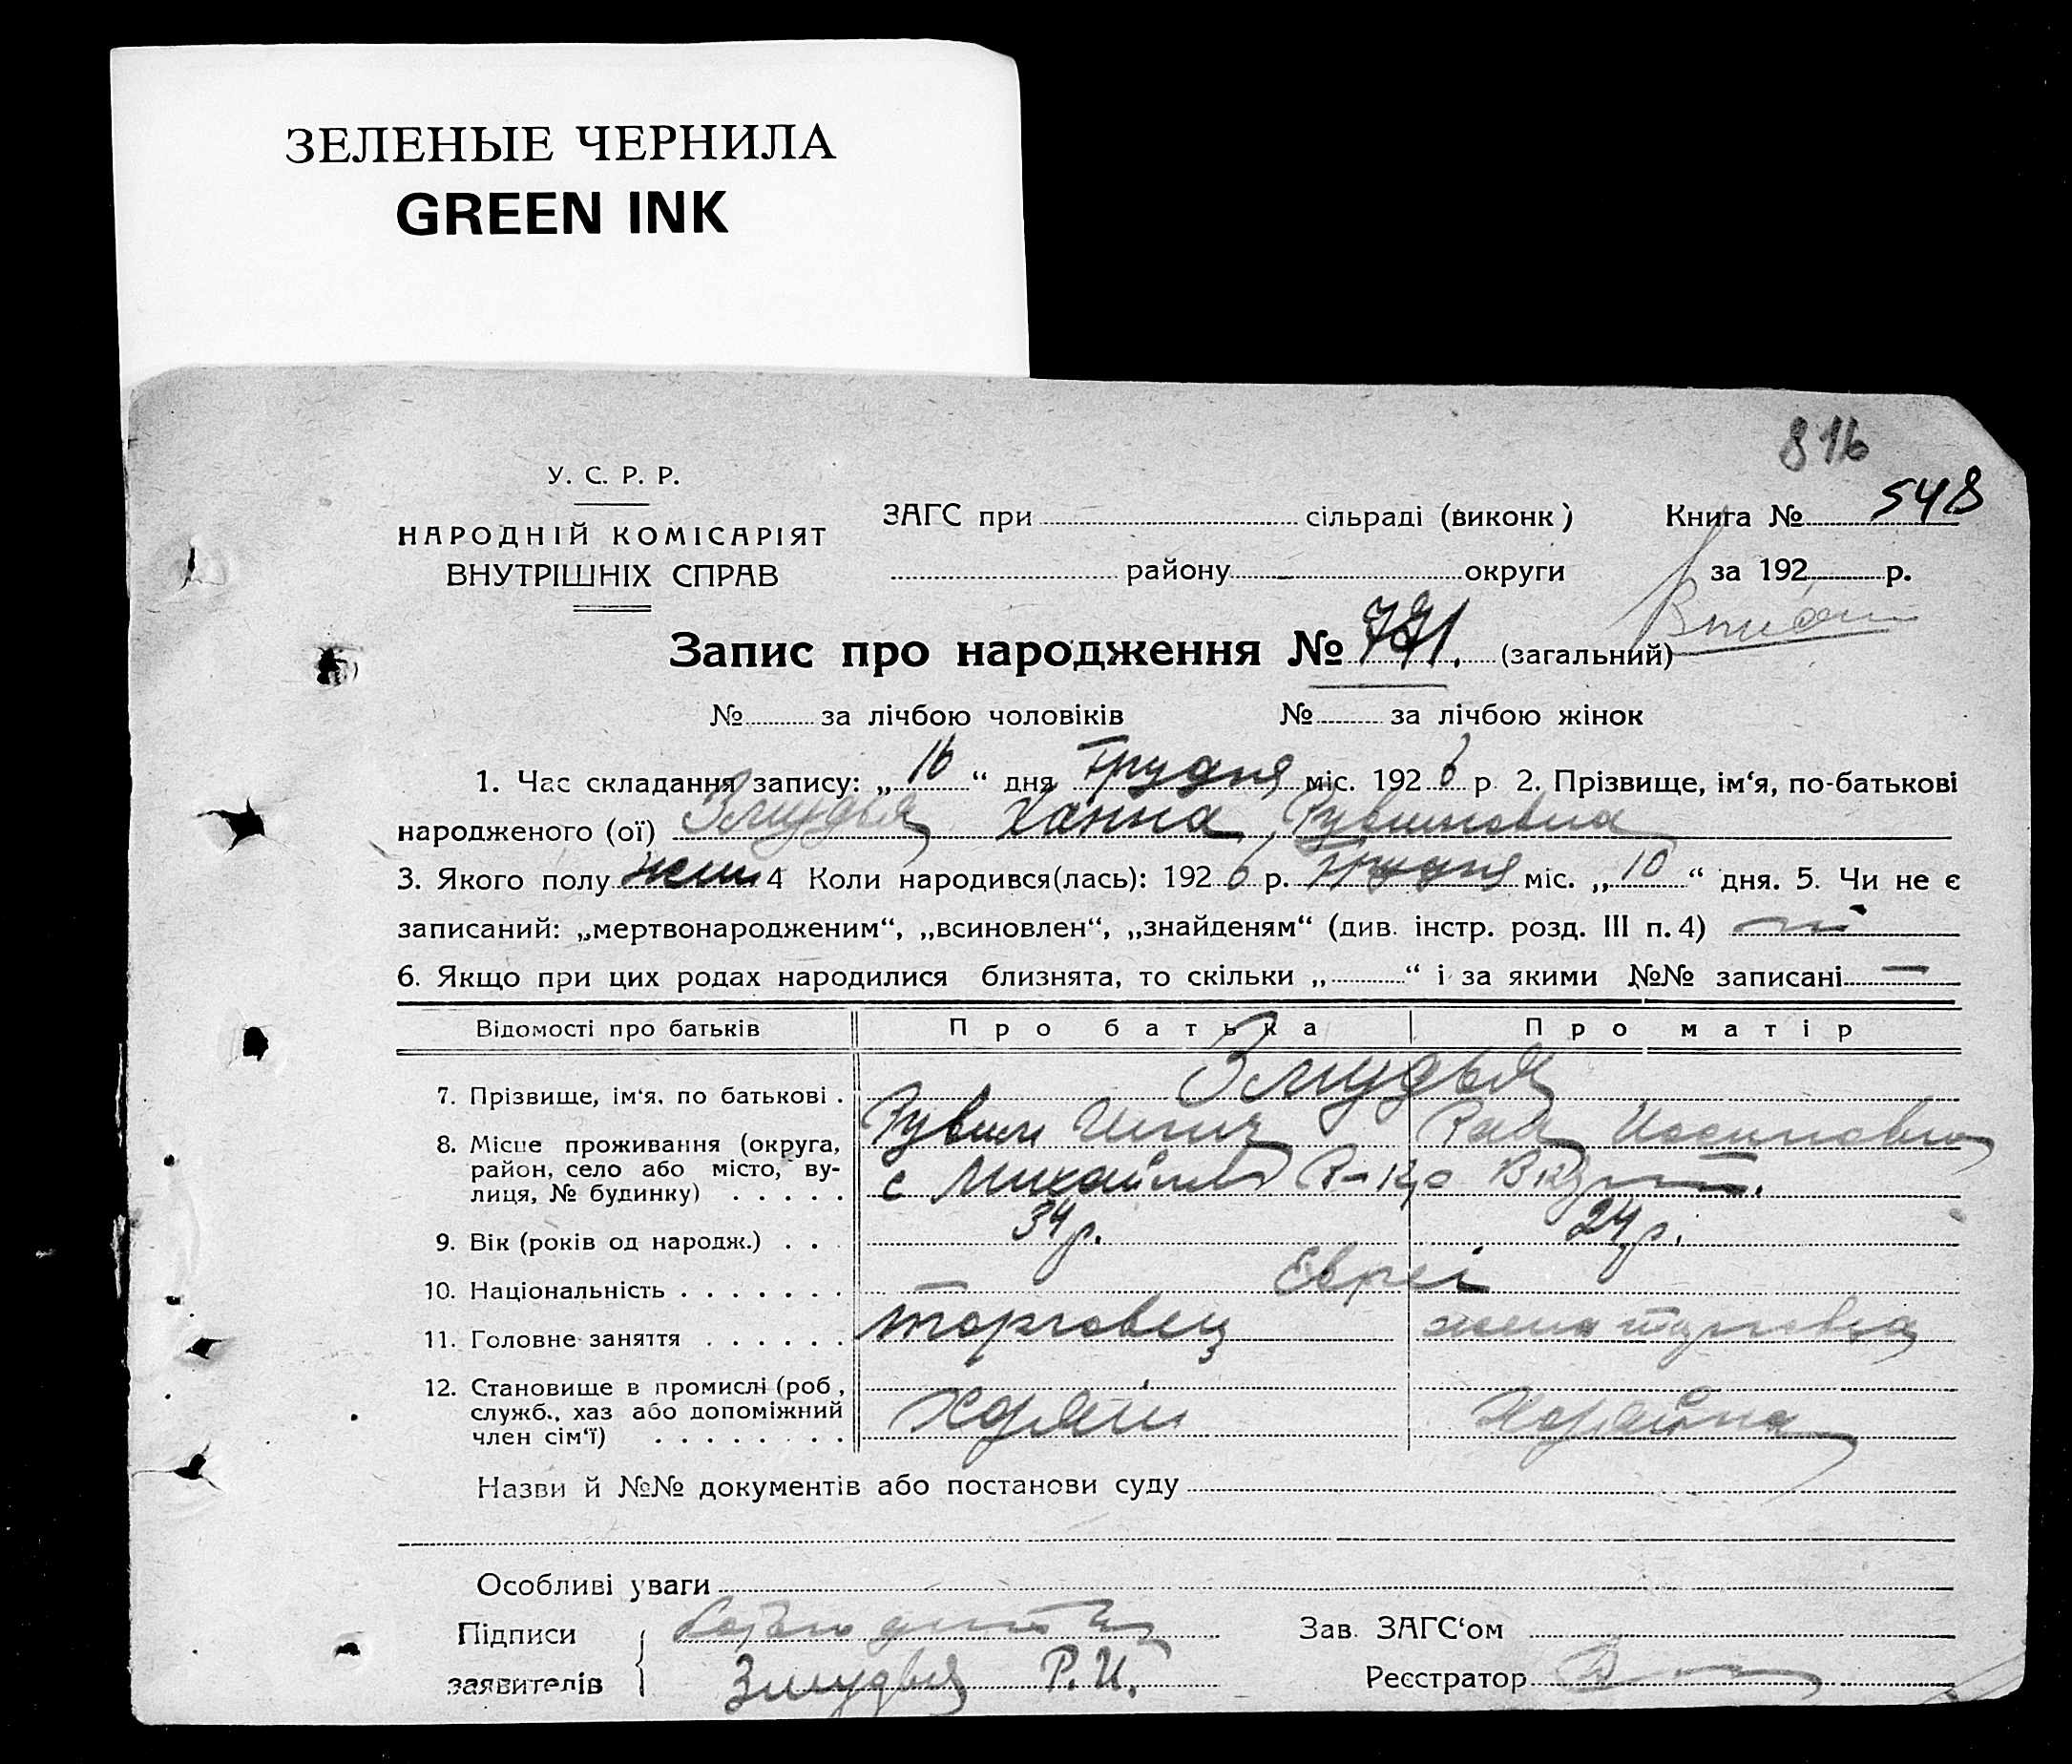 ЗЕЛЕНЫЕ ЧЕРНИЛА
GREEN INK
816
У. С. Р. Р.
НАРОДНІЙ КОМІСАРІЯТ
ВНУТРІШНІХ СПРАВ
ЗАГС при сільраді (виконк) Книга № 548
району округи за 192 р.
Запис про народження № 771. (загальний)
№ за лічбою чоловіків № за лічбою жінок
1. Час складання запису: „16“ дня Грудня міс. 1926 р. 2. Прізвище, ім‘я, по-батькові
народженого (ої) Змудья Ханна Рувиновна
3. Якого полу жін 4 Коли народився(лась): 1926 р. Грудня міс. „10“ дня. 5. Чи не є
записаний: „мертвонародженим“, „всиновлен“, „знайденям“ (див. інстр. розд. III п. 4) ні
6. Якщо при цих родах народилися близнята, то скільки „ “ і за якими №№ записані —
Відомості про батьків Про батька Про матір
Змудья
7. Прізвище, ім‘я, по батькові . Рувин Рая Иосиповна
8. Місце проживання (округа,
район, село або місто, ву-
лиця, № будинку) . . . . . с Р-на
9. Вік (років од народж.) . . . 34 р. 24 р.
10. Національність . . . . . . . Євреї
11. Головне заняття . . . . . . торговец жена торговца
12. Становище в промислі (роб,
служб., хаз або допоміжний
член сім‘ї) . . . . . . . . Хазяїн Хазяйка
Назви й №№ документів або постанови суду
Особливі уваги
Підписи Зав. ЗАГС‘ом
заявителів Змудья Р. И. Реєстратор